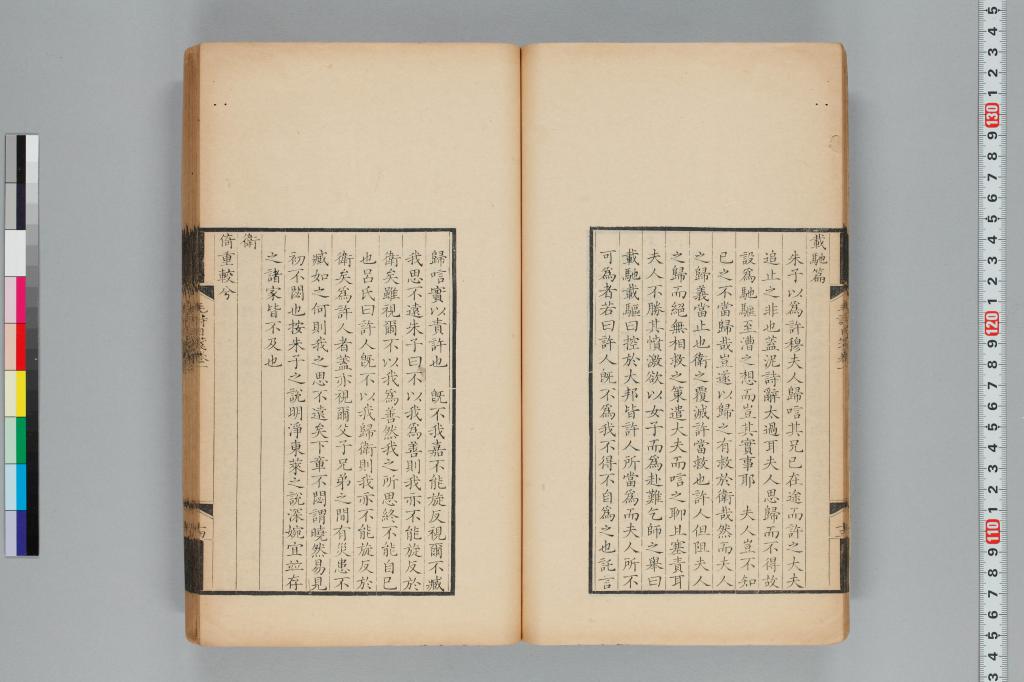 載馳篇
朱子以為許穆夫人歸唁其兄已在途而許之大夫
追止之非也蓋泥詩辭太過耳夫人思歸而不得故
設為馳驅至漕之想而豈其實事耶　夫人豈不知
已之不當歸哉豈遂以歸之有救於衛哉然而夫人
之歸義當止也衛之覆滅許當救也許人但阻夫人
之歸而絕無相救之策遣大夫而唁之聊且塞責耳
夫人不勝其憤激欲以女子而為赴難乞師之舉曰
載馳載驅曰控於大邦皆許人所當為而夫人所不
可為者若曰許人旣不為我不得不自為之也託言
歸唁實以責許也　旣不我嘉不能旋反視爾不臧
我思不遠朱子曰不以我為善則我亦不能旋反於
衛矣雖視爾不以我為善然我之所思終不能自已
也呂氏曰許人旣不以我歸衛則我亦不能旋反於
衛矣為許人者蓋亦視爾父子兄弟之間有災患不
臧如之何則我之思不遠矣下章不閟謂曉然易見
初不閟也按朱子之說明淨東萊之說深婉宜並存
之諸家皆不及也
衛
倚重較兮